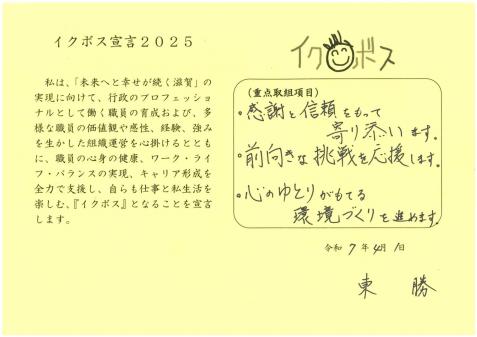 イクボス宣言2025
私は、「未来へと幸せが続く滋賀」の
実現に向けて、行政のプロフェッショ
ナルとして働く職員の育成および、多
様な職員の価値観や感性、経験、強み
を生かした組織運営を心掛けるととも
に、職員の心身の健康、ワーク・ライ
フ・バランスの実現、キャリア形成を
全力で支援し、自らも仕事と私生活を
楽しむ、『イクボス』となることを宣言
します。
イクボス
(重点取組項目)
・感謝と信頼をもって
寄り添います。
・前向きな挑戦を応援します。
・心のゆとりがもてる
環境づくりを進めます。
令和 7 年 4 月 1 日
東 勝